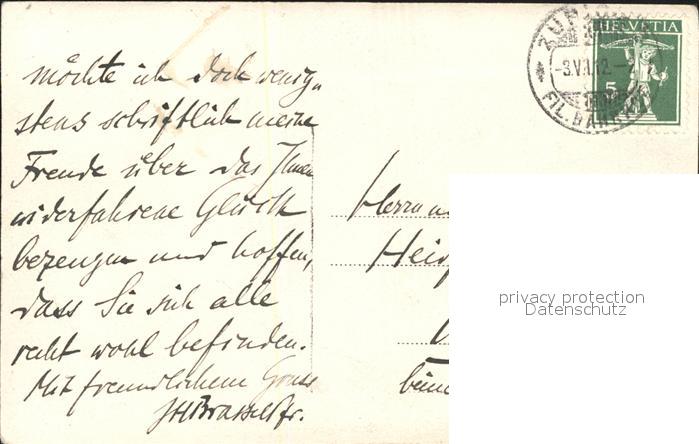 möchte ich doch wenig-
stens schriftlich meine
Freude über das Ihnen
widerfahrene Glück
bezeugen und hoffen,
dass Sie sich alle
recht wohl befinden.
Mit freundlichem Gruss
Herrn
HELVETIA
5
privacy protection
Datenschutz